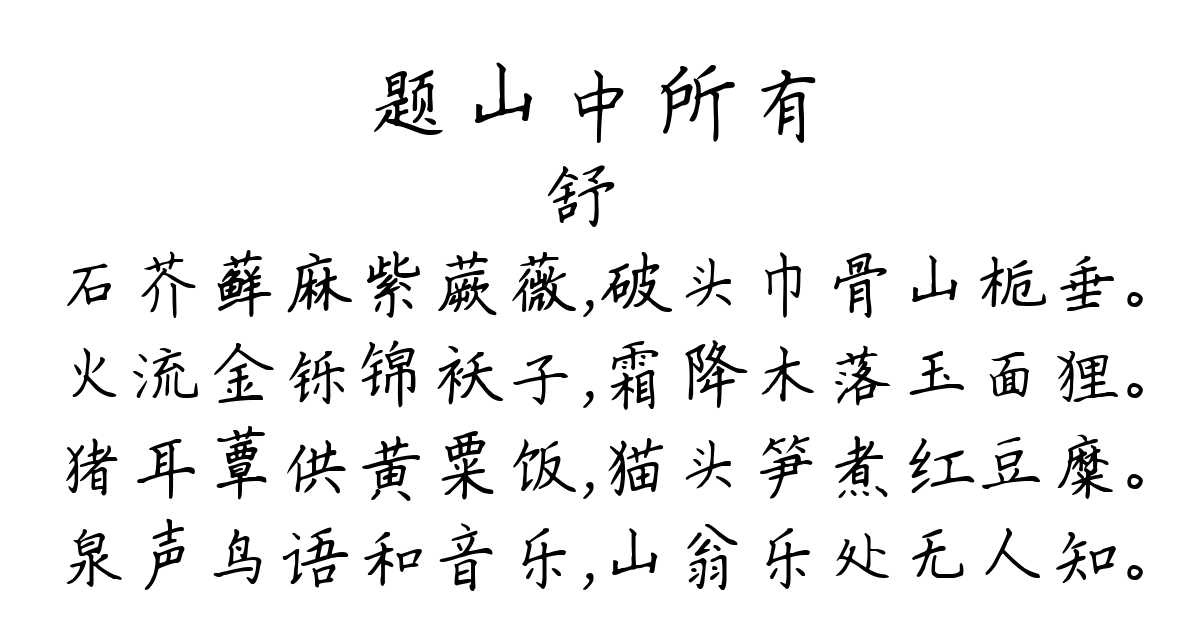 题山中所有
舒
石芥藓麻紫蕨薇,破头巾骨山栀垂。
火流金铄锦袄子,霜降木落玉面狸。
猪耳蕈供黄粟饭,猫头笋煮红豆糜。
泉声鸟语和音乐,山翁乐处无人知。